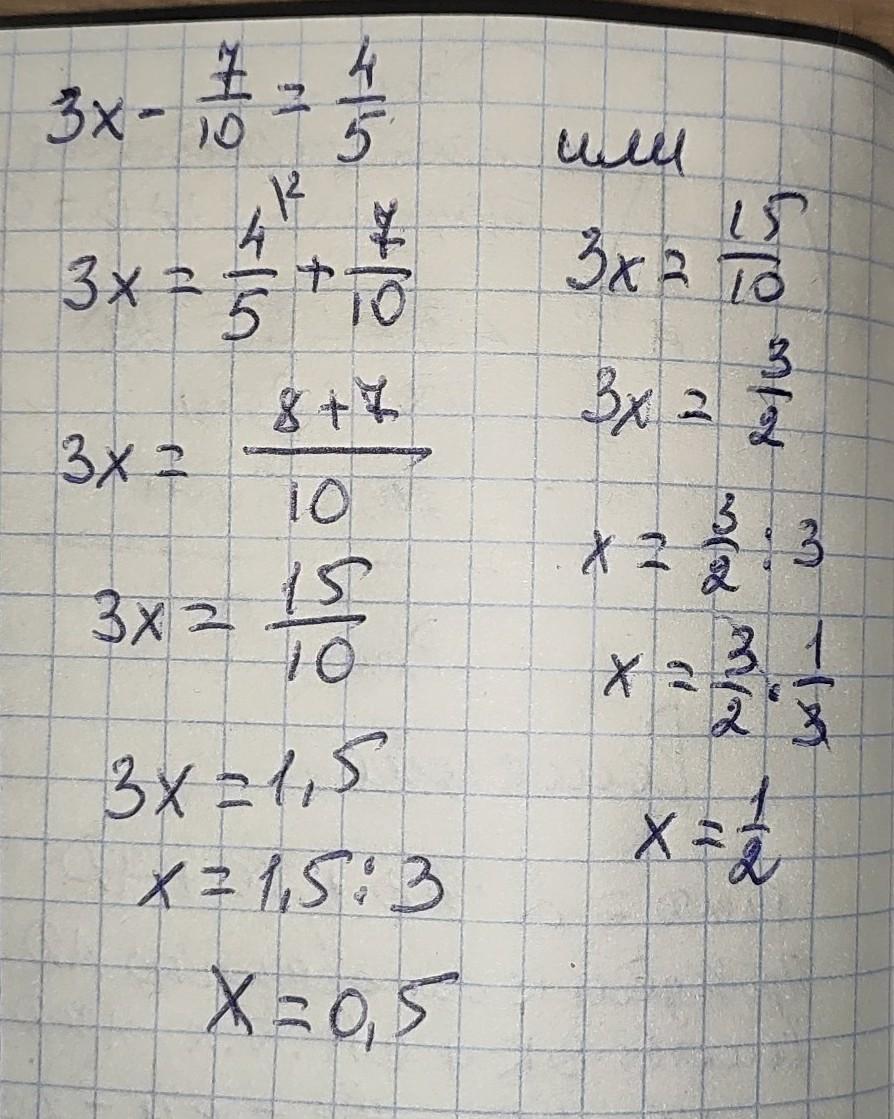 3x - 7/10 = 4/5
3x = 4/5 \2 + 7/10
3x = (8+7)/10
3x = 15/10
3x = 1,5
x = 1,5 : 3
x = 0,5
или
3x = 15/10
3x = 3/2
x = 3/2 : 3
x = 3/2 · 1/3
x = 1/2